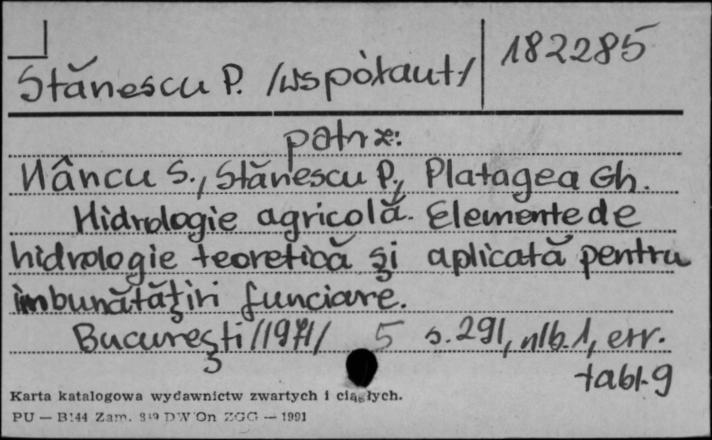 182285
Stănescu P. /wspòłaut/
patrz:
Hâncu S., Stănescu P., Platagea Gh.
Hidrologie agricolă. Elemente de
hidrologie teoretică şi aplicată pentru
imbunătăţiri funciare.
Bucureşti /1971/ 5 s. 291, nlb. 1, err.
tabl. 9
Karta katalogowa wydawnictw zwartych i ciągłych.
PU — B144 Zam. 819 DW On ZGG — 1991